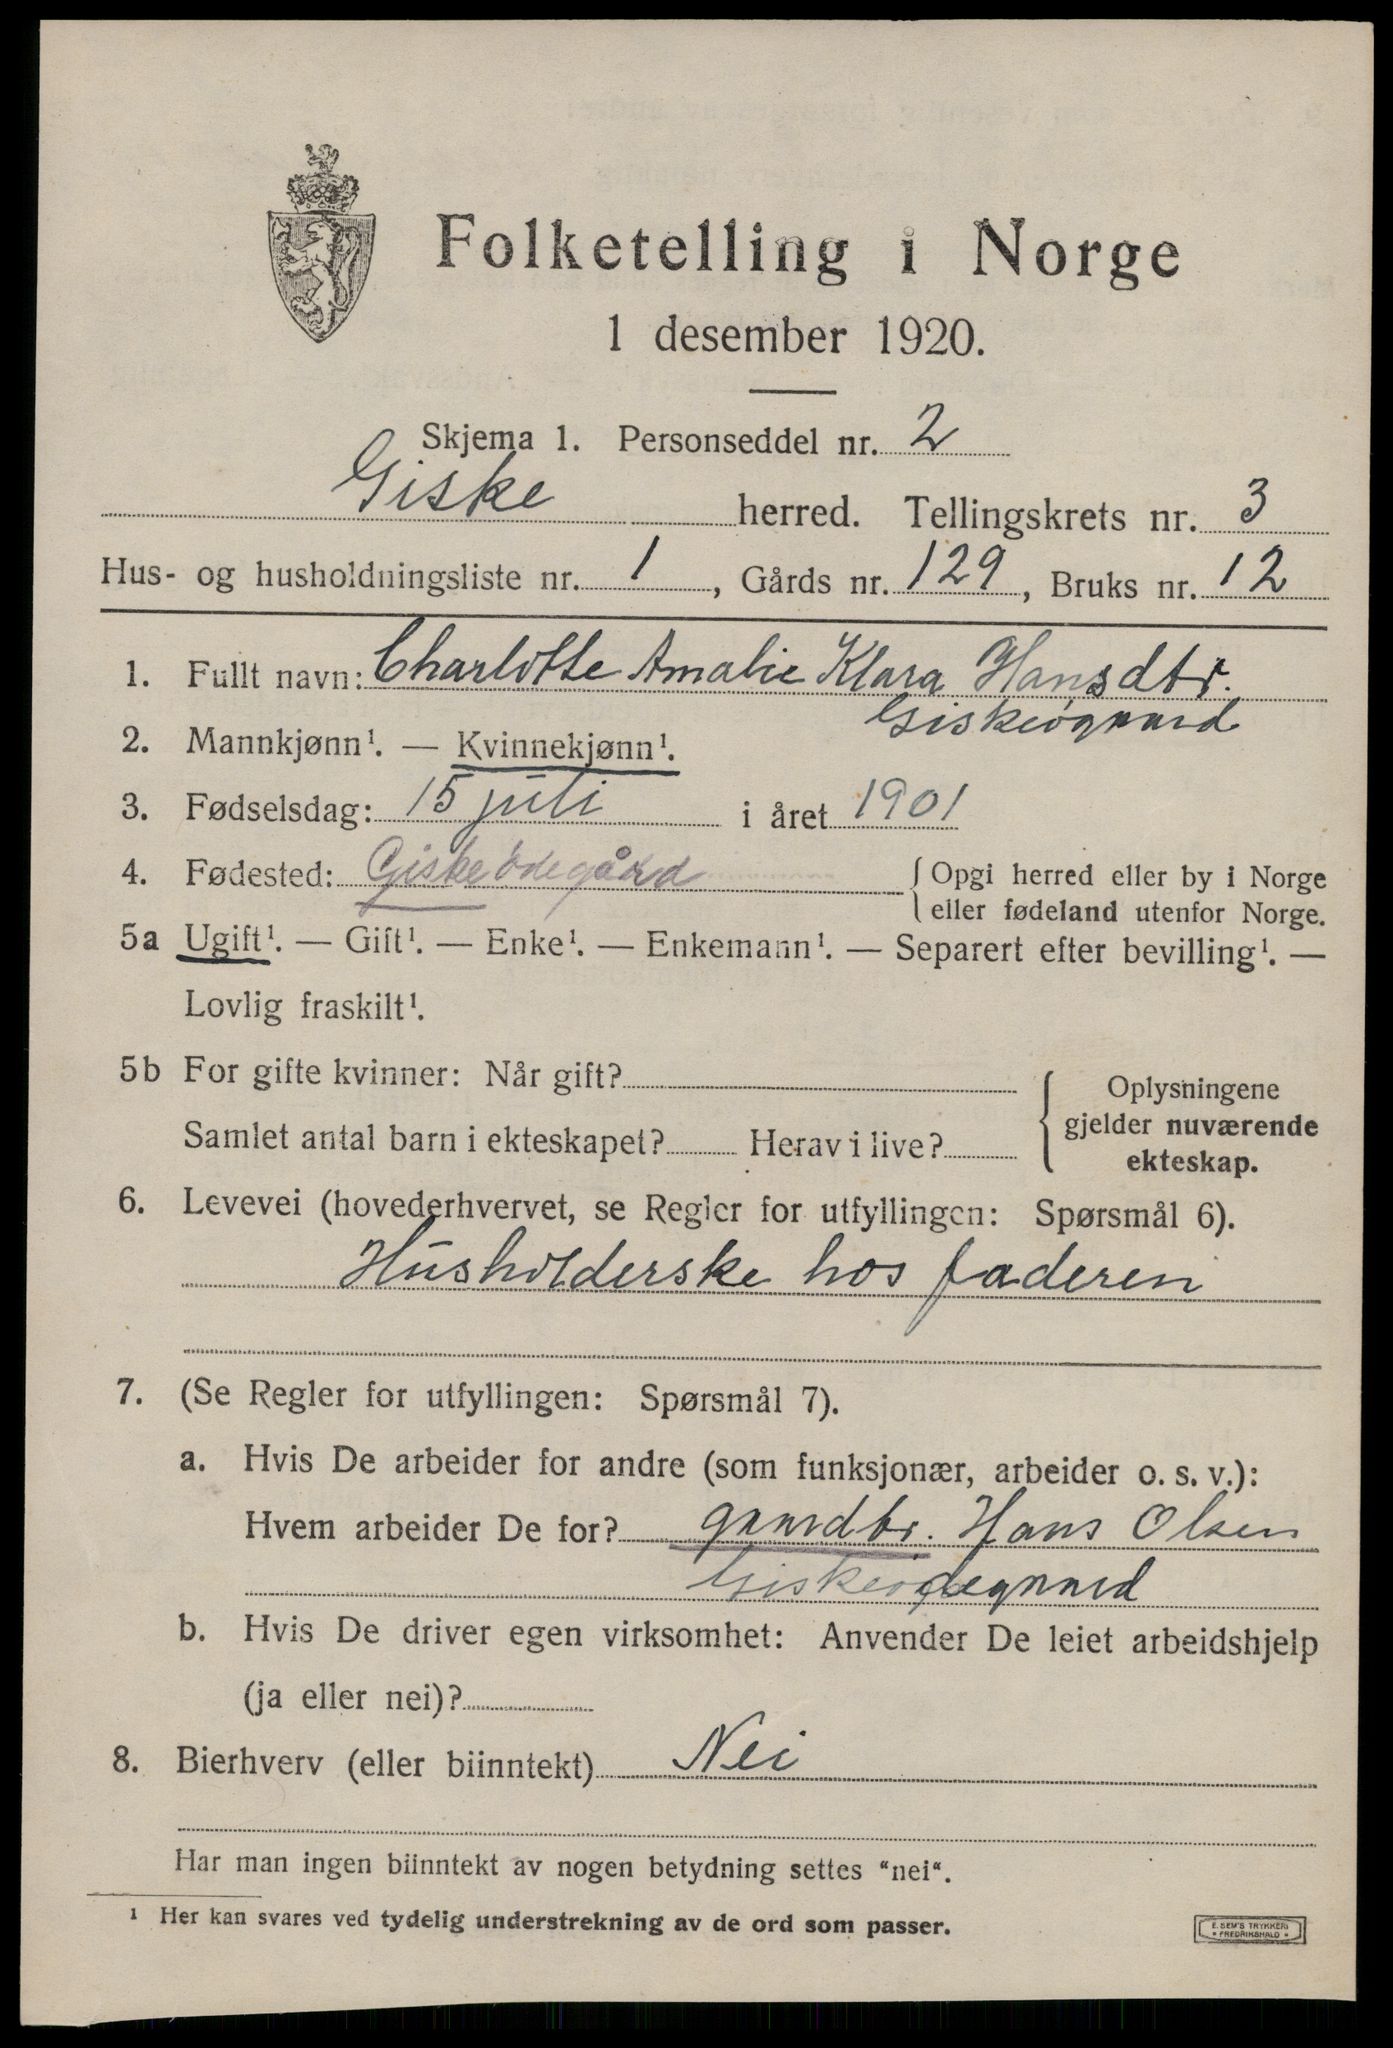 Folketelling i Norge
1 desember 1920.
Skjema 1. Personseddel nr. 2
Giske herred. Tellingskrets nr. 3
Hus- og husholdningsliste nr. 1, Gårds nr. 129, Bruks nr. 12
1. Fullt navn: Charlotte Amalie Klara Hansdtr.
Giskeøgaard
2. Mannkjønn¹. — Kvinnekjønn¹.
3. Fødselsdag: 15 juli i året 1901
4. Fødested: Giskeödegård { Opgi herred eller by i Norge
eller fødeland utenfor Norge.
5a Ugift¹. — Gift¹. — Enke¹. — Enkemann¹. — Separert efter bevilling¹. —
Lovlig fraskilt¹.
5b For gifte kvinner: Når gift?
Samlet antal barn i ekteskapet? Herav i live?
{ Oplysningene
gjelder nuværende
ekteskap.
6. Levevei (hovederhvervet, se Regler for utfyllingen: Spørsmål 6).
Husholderske hos faderen
7. (Se Regler for utfyllingen: Spørsmål 7).
a. Hvis De arbeider for andre (som funksjonær, arbeider o. s. v.):
Hvem arbeider De for? gaardbr. Hans Olsen
Giskeødegaard
b. Hvis De driver egen virksomhet: Anvender De leiet arbeidshjelp
(ja eller nei)?
8. Bierhverv (eller biinntekt) Nei
Har man ingen biinntekt av nogen betydning settes "nei".
¹ Her kan svares ved tydelig understrekning av de ord som passer.
E. SEM'S TRYKKERI
* FREDRIKSHALD *